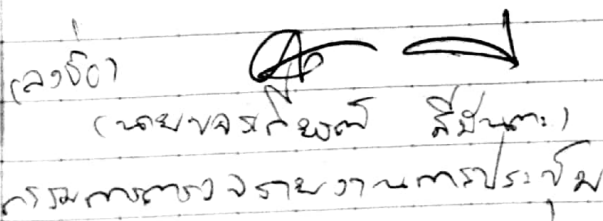 ลงชื่อ
(นายขจรเกียรติ์ สีปันตะ)
กรรมการตรวจรายงานการประชุม